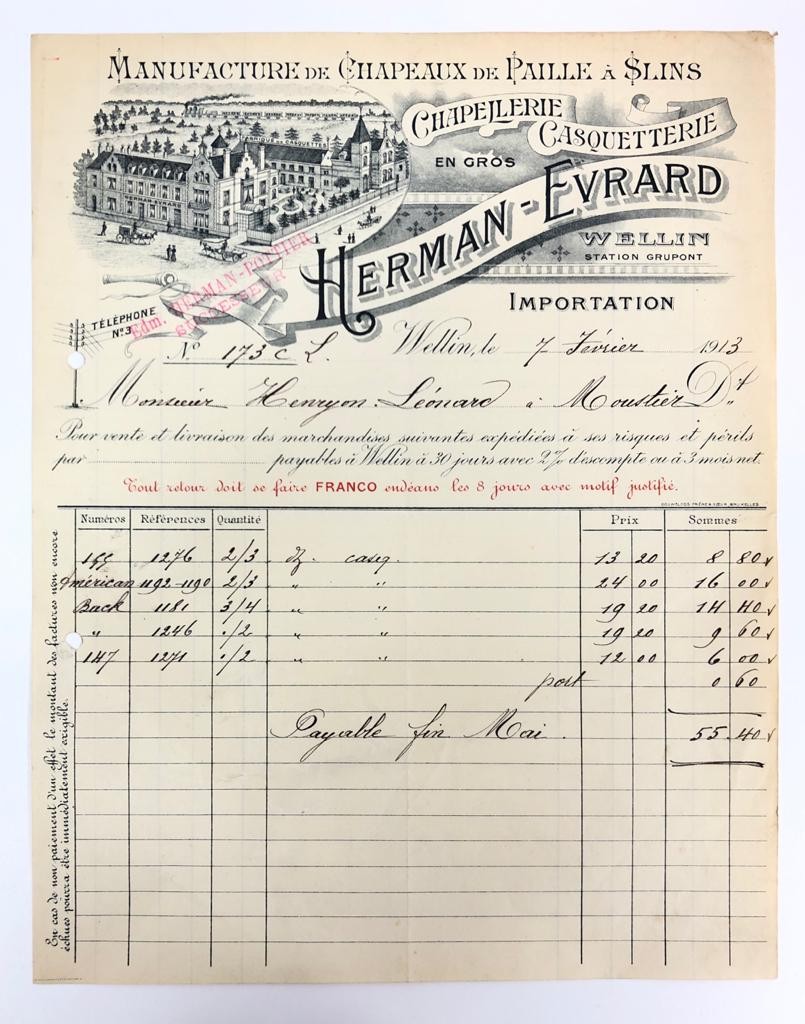 MANUFACTURE DE CHAPEAUX DE PAILLE À SLINS
CHAPELLERIE
CASQUETTERIE
EN GROS
FABRIQUE DE CASQUETTES
HERMAN-EVRARD
HERMAN - EVRARD
WELLIN
STATION GRUPONT
IMPORTATION
TÉLÉPHONE
N°3
Edm. HERMAN-POTTIER
SUCCESSEUR
N° 173 c L.
Wellin, le 7 Février 1913
Monsieur Henryon-Léonard à Moustier Dt
Pour vente et livraison des marchandises suivantes expédiées à ses risques et périls
par payables à Wellin à 30 jours avec 2% d'escompte ou à 3 mois net.
Tout retour doit se faire FRANCO endéans les 8 jours avec motif justifié.
Numéros Références Quantité Prix Sommes
1276 2/3 dz. casq. 13 20 8 80
Américan 1192-1190 2/3 " " 24 00 16 00
Back 1181 3/4 " " 19 20 14 40
" 1246 ./2 " " 19 20 9 60
147 1271 ./2 " " 12 00 6 00
port 0 60
Payable fin Mai. 55.40
En cas de non paiement d'un effet le montant des factures non encore
échues pourra être immédiatement exigible.